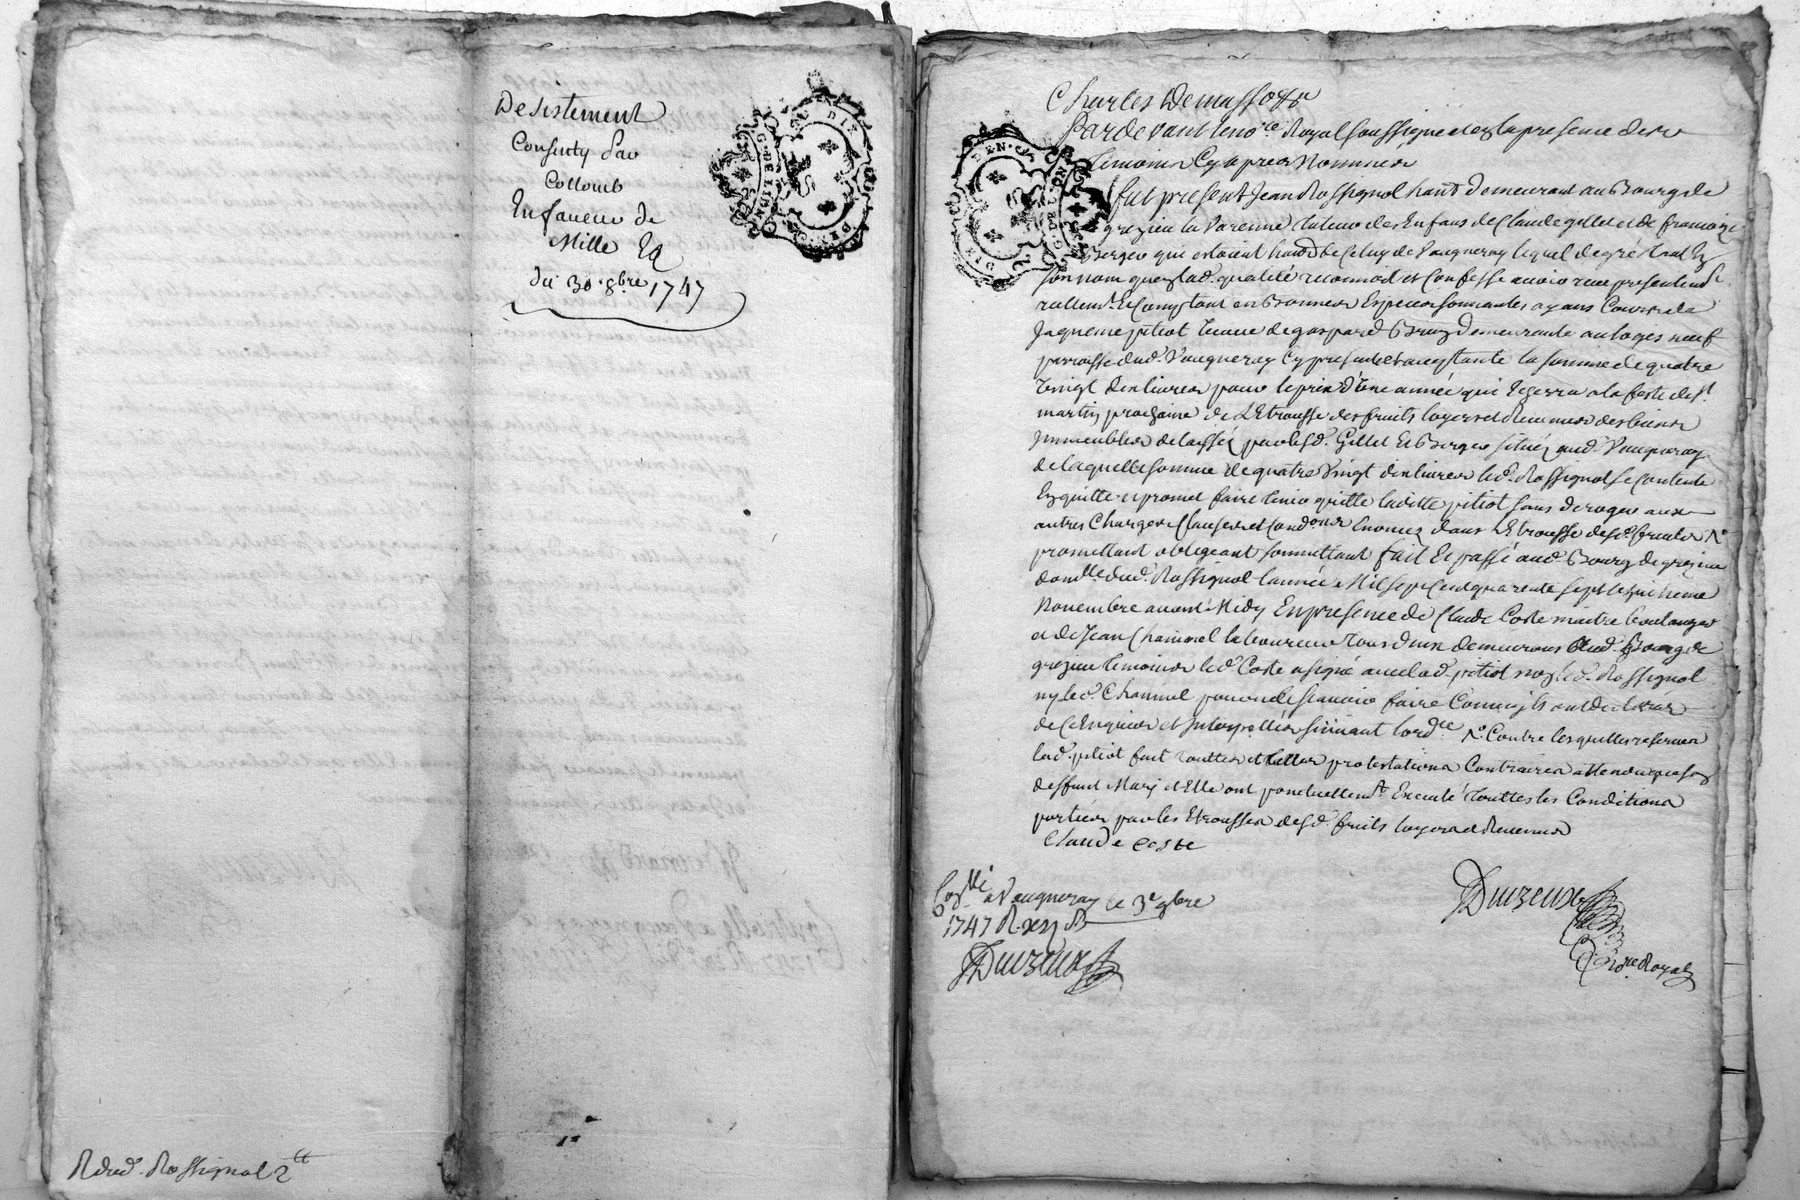 Desistement
Consenty par
Collomb
En faveur de
Mille Ea
du 30 8bre 1747
R du d. Rossignol 2tt
GDELION
DEN
DIX
Charles Demasso &r
Pardevant le nore Royal soussigné et en la presence de
temoins cy apres nommes
fut present Jean Rossignol habt demeurant au Bourg de
grezieu la Varenne tuteur des Enfans de Claude gillet et de francoize
Berger qui estoient habds de Celuy de Vaugneray lequel de gré tant En
son nom quen lad. qualité reconnoit et Confesse avoir reçu presentemt
rallemt Et Comptant en Bonnes Especes sonnantes ayans Cours de
Jaqueme pitiot veuve de gaspard Bruy demeurante au loges neuf
parroisse dud. Vaugneray Cy presente et acceptante la somme de quatre
vingt dix livres pour le prix d'Une année qui Echerra a la feste de St.
martin prochaine de L'Etrousse des fruits loyers et Revenus des biens
Jmmeubles delaissés par lesd. Gillet Et Berger situéz aud. Vaugneray
de laquelle somme de quatre Vingt dix livres led. Rossignol se Contente
En quitte et promet faire tenir quitte laditte pitiot sans deroger aux
autres Charges Clauses et Condons Enoncez dans L'Etrousse desd. fruits No
promettant obligeant sommettant fait Et passé aud. Bourg de grezieu
domlle dud. Rossignol l'année Mil sept Cent quarente sept le
Novembre avant Midy En presence de Claude Coste maitre boulanger
et de Jean Chammel laboureur tous deux demeurans aud. Bourg de
grezieu temoins led. Coste a signé avec lad. pitiot non led. Rossignol
ny led. Chammel pour ne le scavoir faire Comm'jls ont declaré
de Ce Enquis et Interpellés suivant lordce No Contre lesquelles reserves
lad. pitiot fait touttes et telles protestations Contraires attendu que son
deffunt Mary et Elle ont ponctuellemt Executé touttes les Conditions
portées par les Etrousses desd. fruits loyers et Revenus
Claude coste
Conllé a Vaugneray le 3e 9bre
1747 R.
Duizeux
Duizeux
nore Royal